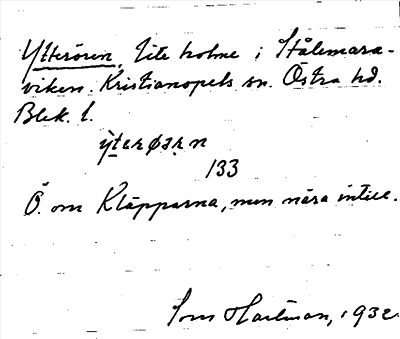 Ytterören. Lite holme i Stålemara-
viken. Kristianopels sn. Östra hd.
Blek. l.
ỳtərøərn
133
Ö. om Kläpparna, men nära intill.
Hartman, 1932